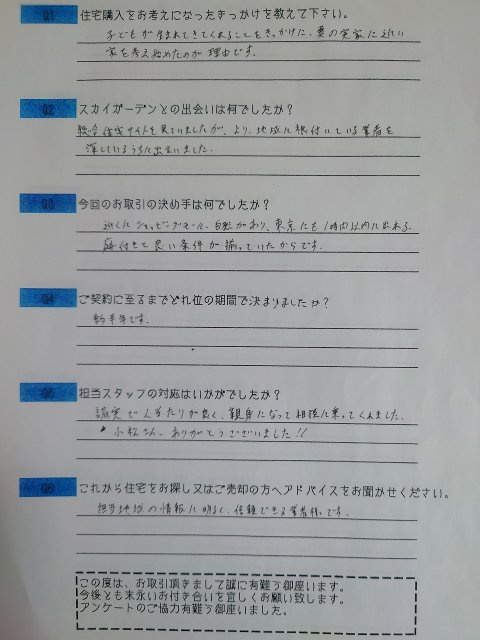 Q1 住宅購入をお考えになったきっかけを教えて下さい。
子どもが生まれてきてくれることをきっかけに、妻の実家に近い
家を考え始めたのが理由です。
Q2 スカイガーデンとの出会いは何でしたか？
総合住宅サイトを見ていましたが、より、地域に根付いている業者を
探しているうちに出会いました。
Q3 今回のお取引の決め手は何でしたか？
近くにショッピングモール、自然があり、東京にも1時間以内に出れる。
庭付きで良い条件が揃っていたからです。
Q4 ご契約に至るまでどれ位の期間で決まりましたか？
約半年です。
Q5 担当スタッフの対応はいかがでしたか？
誠実で人当たりが良く、親身になって相談に乗ってくれました。
小松さん、ありがとうございました!!
Q6 これから住宅をお探し又はご売却の方へアドバイスをお聞かせください。
担当地域の情報に明るく、信頼できる業者様です。
この度は、お取引頂きまして誠に有難う御座います。
今後とも末永いお付き合いを宜しくお願い致します。
アンケートのご協力有難う御座いました。